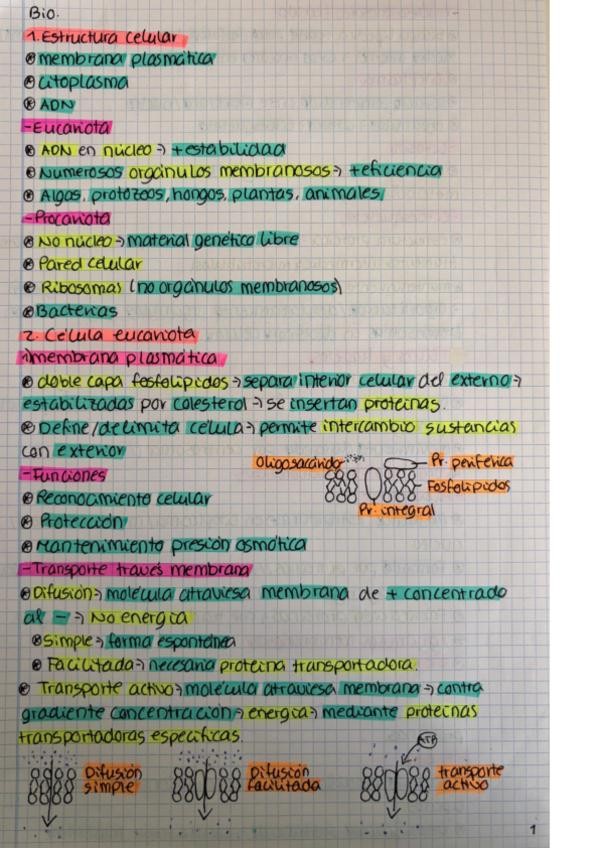 Bio.
1. Estructura celular
⊛ membrana plasmática
⊛ citoplasma
⊛ ADN
- Eucariota
⊛ ADN en núcleo → + estabilidad
⊛ Numerosos orgánulos membranosos → + eficiencia
⊛ Algas, protozoos, hongos, plantas, animales
- Procariota
⊛ No núcleo → material genético libre
⊛ Pared celular
⊛ Ribosomas (no orgánulos membranosos)
⊛ Bacterias
2. Célula eucariota
membrana plasmática
⊛ doble capa fosfolípidos → separa interior celular del externo →
estabilizadas por colesterol → se insertan proteínas.
⊛ Define/delimita célula → permite intercambio sustancias
con exterior
Oligosacárido
Pr. periférica
Fosfolípidos
Pr. integral
- Funciones
⊛ Reconocimiento celular
⊛ Protección
⊛ Mantenimiento presión osmótica
- Transporte través membrana
⊛ Difusión → molécula atraviesa membrana de + concentrado
al - → No energía
⊛ Simple → forma espontánea
⊛ Facilitada → necesaria proteína transportadora.
⊛ Transporte activo → molécula atraviesa membrana → contra
gradiente concentración → energía → mediante proteínas
transportadoras específicas.
Difusión
simple
Difusión
facilitada
ATP
transporte
activo
1